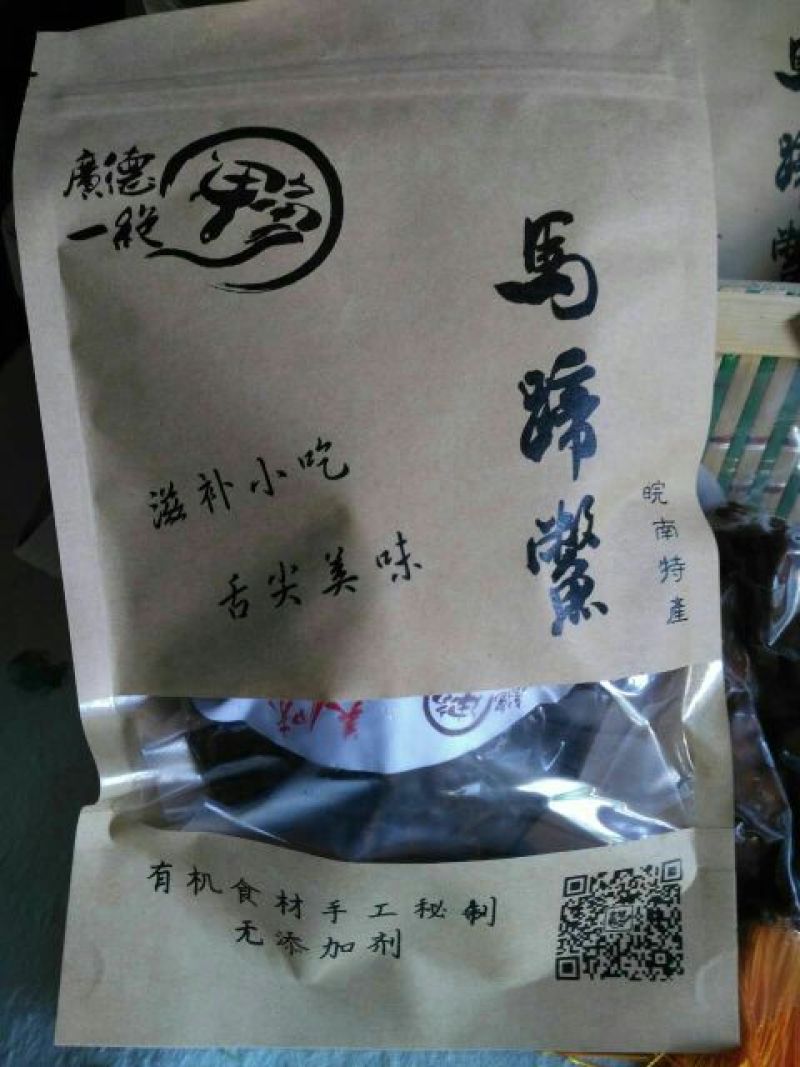 廣德
一絕
馬蹄鱉
皖南特產
滋补小吃
舌尖美味
有机食材手工秘制
无添加剂
馬蹄鱉